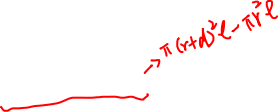 → π(r+d)²l - πr²l